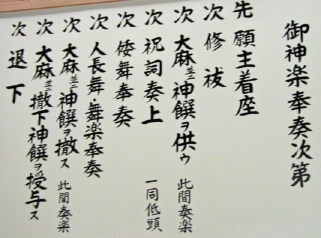 御神楽奉奏次第
先 願主着座
次 修祓
次 大麻並ニ神饌ヲ供ウ 此間奏楽
次 祝詞奏上 一同低頭
次 倭舞奉奏
次 人長舞・舞楽奉奏
次 大麻並ニ神饌ヲ撤ス 此間奏楽
次 大麻並ニ撤下神饌ヲ授与ス
次 退下